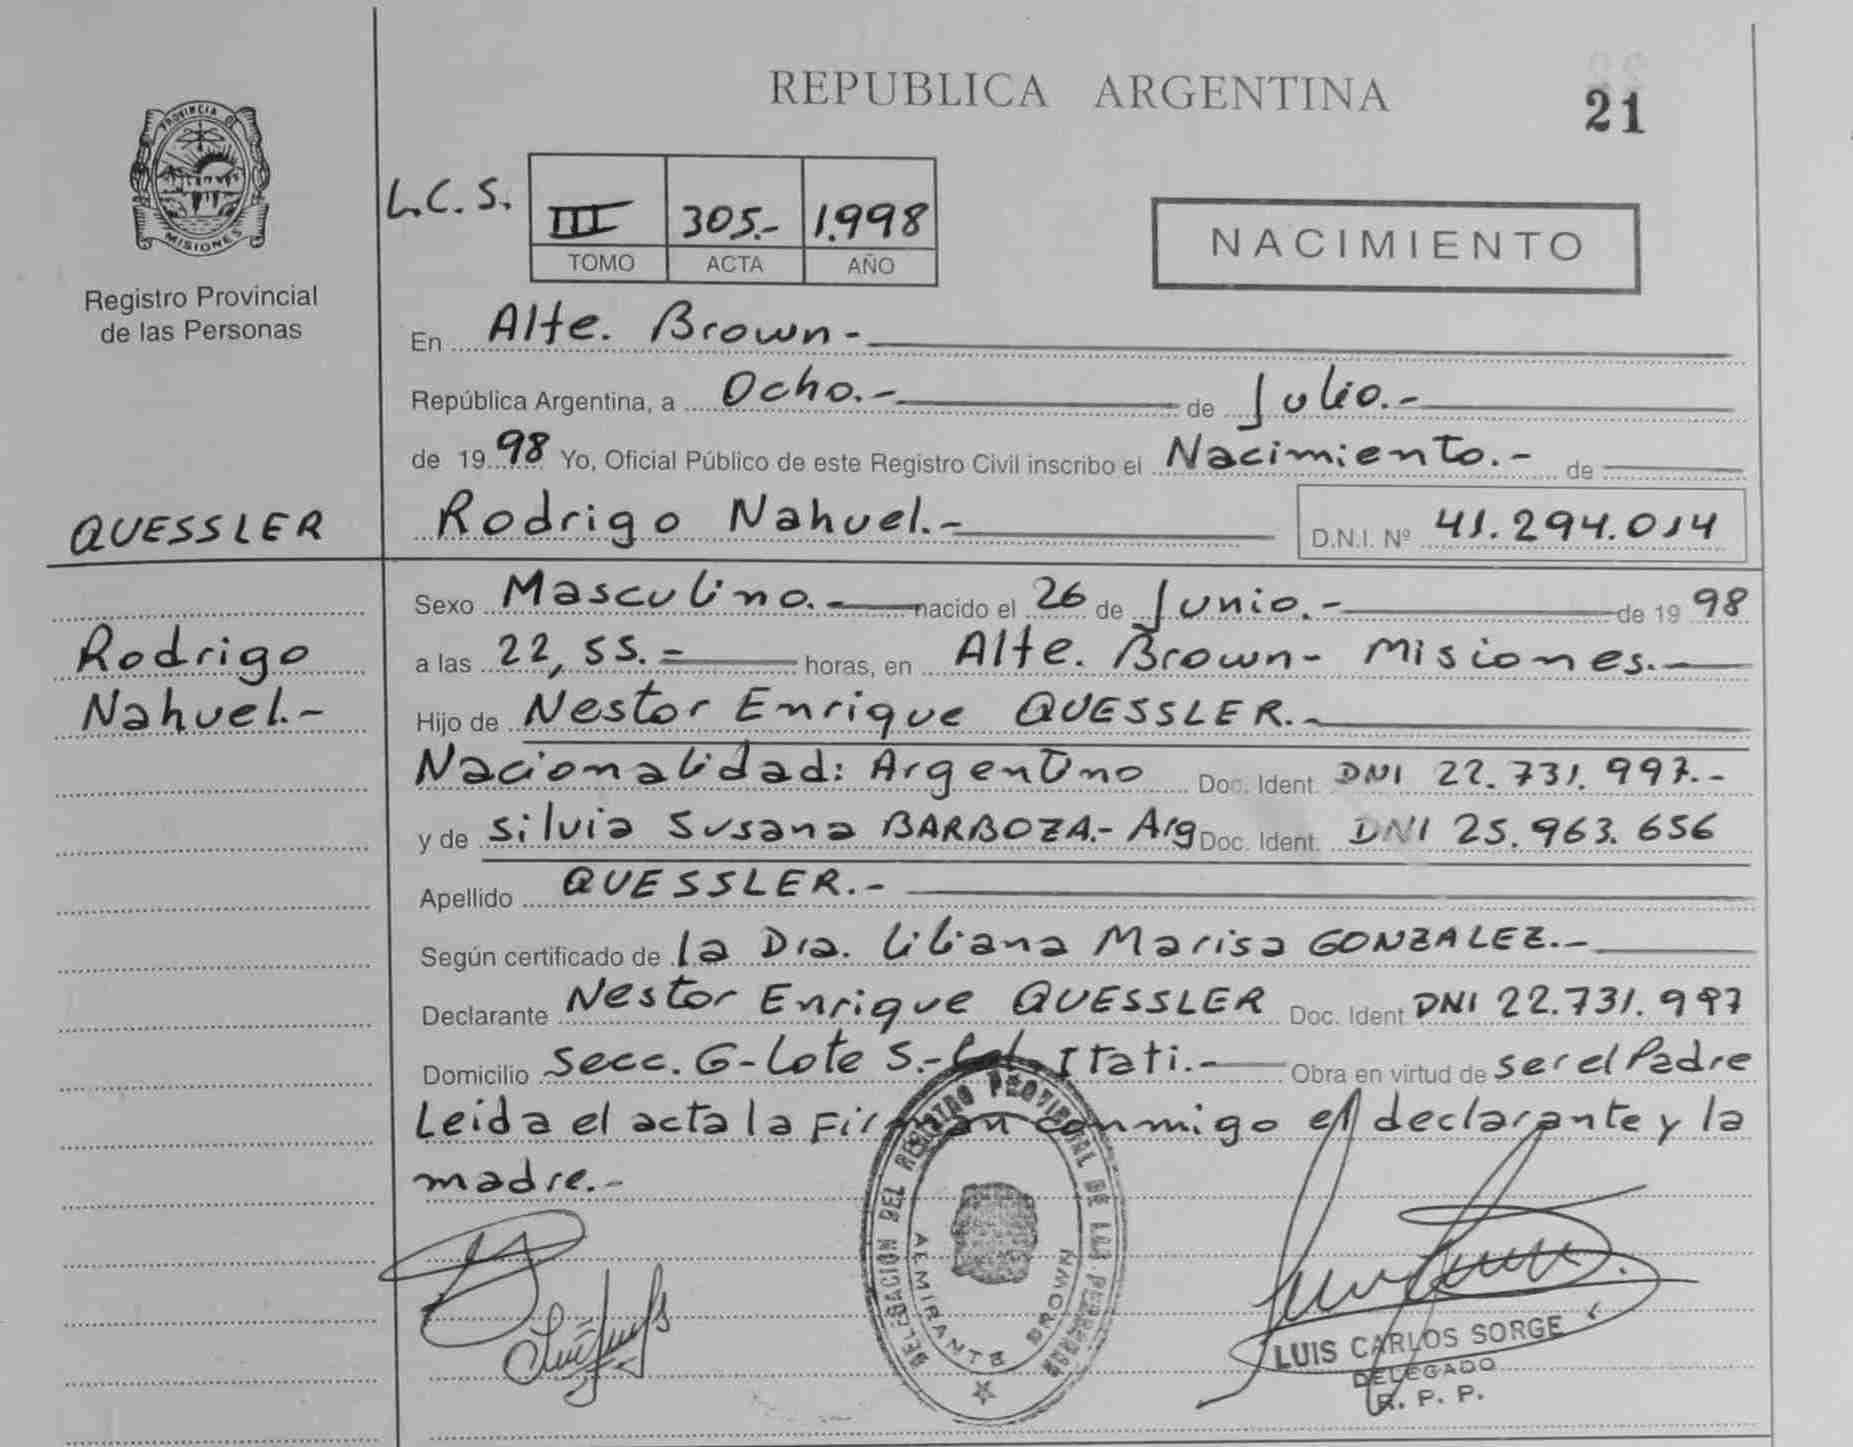 REPUBLICA ARGENTINA
21
PROVINCIA DE
MISIONES
Registro Provincial
de las Personas
L.C.S.
III 305.- 1.998
TOMO ACTA AÑO
NACIMIENTO
En Alte. Brown-
República Argentina, a Ocho.- de Julio.-
de 1998 Yo, Oficial Público de este Registro Civil inscribo el Nacimiento.- de
QUESSLER
Rodrigo Nahuel.- D.N.I. Nº 41.294.014
Sexo Masculino.- nacido el 26 de Junio.- de 1998
Rodrigo
Nahuel.-
a las 22,55.- horas, en Alte. Brown- Misiones.-
Hijo de Nestor Enrique QUESSLER.-
Nacionalidad: Argentino Doc. Ident. DNI 22.731.997.-
y de Silvia Susana BARBOZA.- Arg Doc. Ident. DNI 25.963.656
Apellido QUESSLER.-
Según certificado de la Dra. Liliana Marisa GONZALEZ.-
Declarante Nestor Enrique QUESSLER Doc. Ident DNI 22.731.997
Domicilio Secc. G-Lote 5.-Col. Itati.- Obra en virtud de ser el Padre
Leida el acta la Firman conmigo el declarante y la
madre.-
DELEGACION DEL REGISTRO PROVINCIAL DE LAS PERSONAS
ALMIRANTE BROWN
LUIS CARLOS SORGE
DELEGADO
R. P. P.